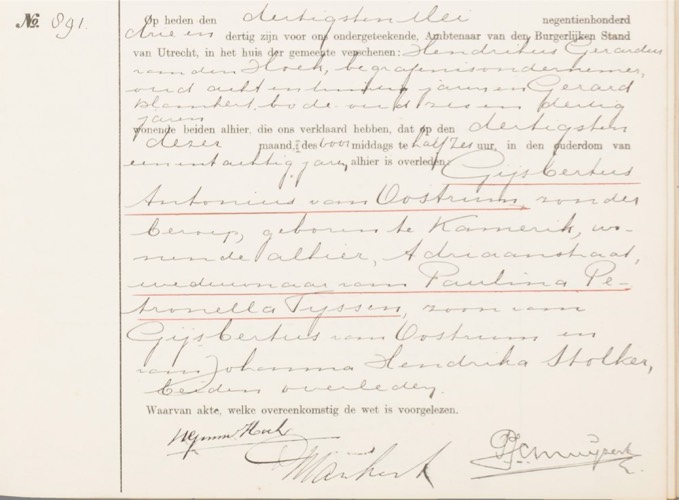 No. 891.
Op heden den dertigsten Mei negentienhonderd
drie en dertig zijn voor ons ondergeteekende, Ambtenaar van den Burgerlijken Stand
van Utrecht, in het huis der gemeente verschenen: Hendrikus Gerardus
van den Hoek, begrafenisondernemer,
oud acht en twintig jaren en Gerard
Blankert, bode oud zes en dertig
jaren
wonende beiden alhier, die ons verklaard hebben, dat op den dertigsten
dezer maand, des voormiddags te half zes uur, in den ouderdom van
een en tachtig jaren, alhier is overleden: Gijsbertus
Antonius van Oostrum, zonder
beroep, geboren te Kamerik, wo-
nende alhier, Adriaanstraat,
weduwnaar van Paulina Pe-
tronella Tyssen, zoon van
Gijsbertus van Oostrum en
van Johanna Hendrika Stolker,
beiden overleden.
Waarvan akte, welke overeenkomstig de wet is voorgelezen.